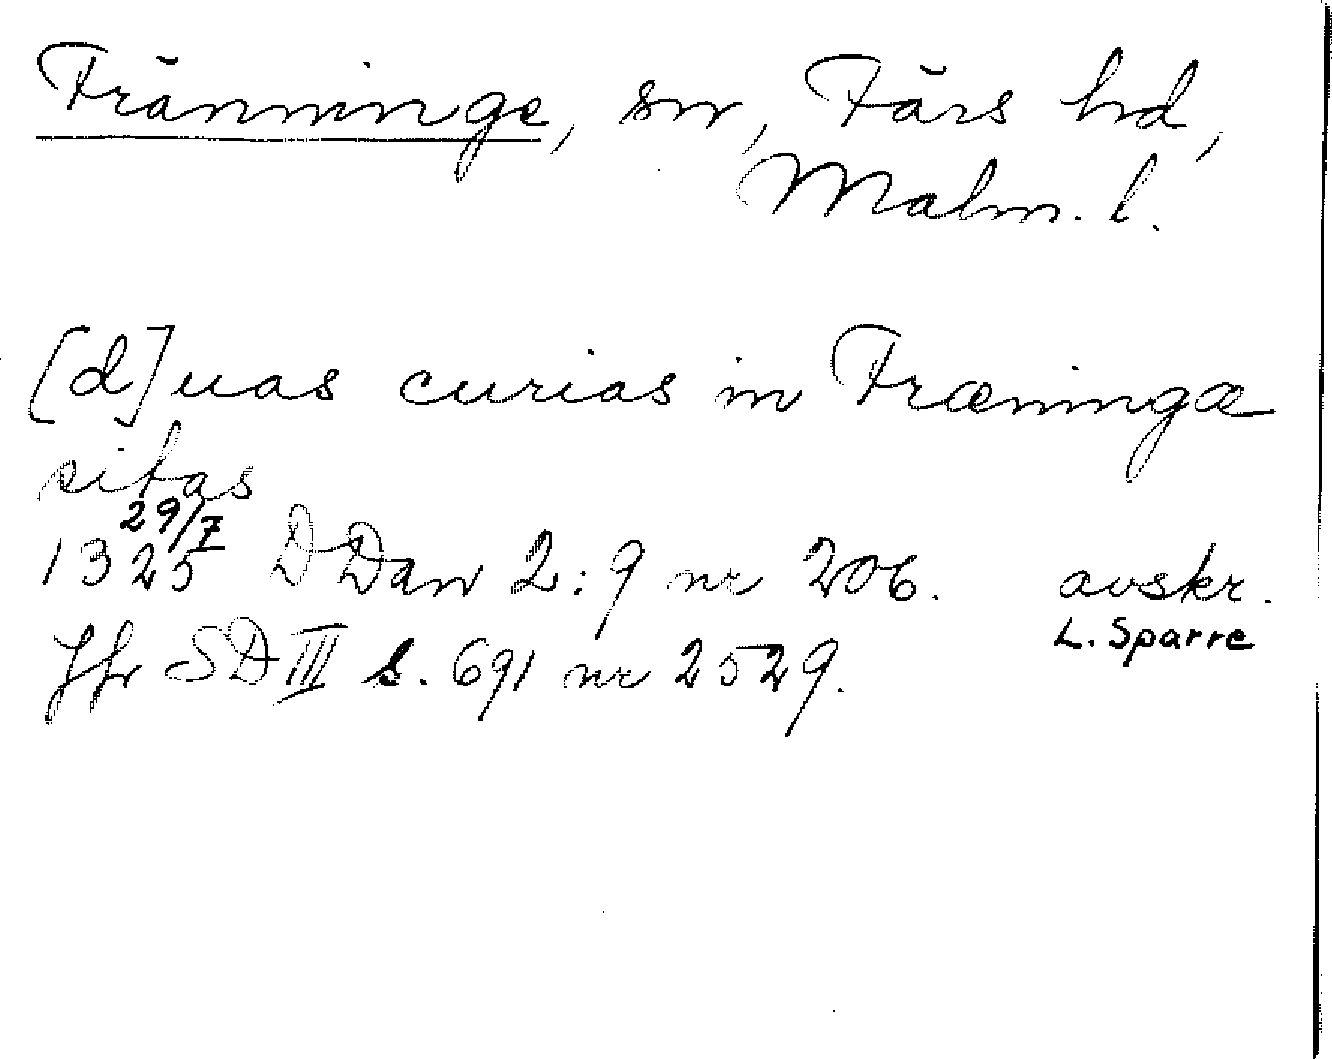 Fränninge, sn, Färs hd,
Malm. l.
[d]uas curias in Fræningæ
sitas
29/7
1325 DDan 2:9 nr 206. avskr.
Jfr SD III s. 691 nr 2529. L. Sparre